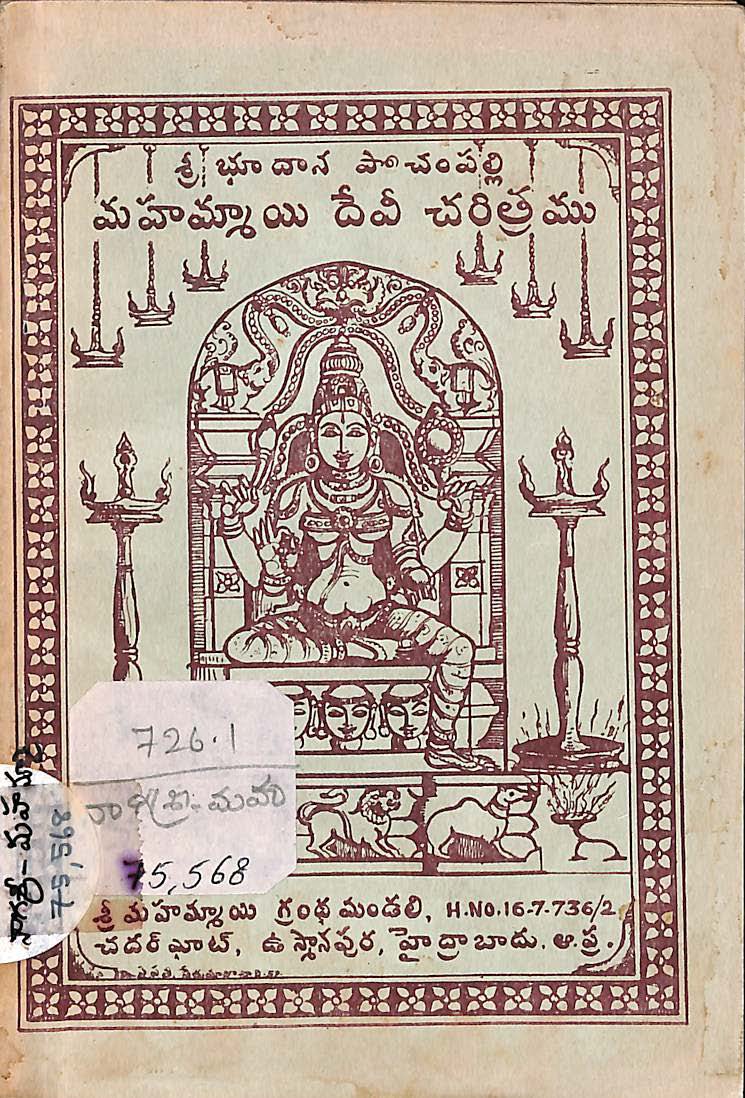 శ్రీ భూదాన పోచంపల్లి
మహమ్మాయి దేవీ చరిత్రము
726.1
75,568
75,568
శ్రీ మహమ్మాయి గ్రంథ మండలి, H.NO.16-7-736/2
చదర్ ఘాట్, ఉస్మానపుర, హైద్రాబాదు. ఆ.ప్ర.